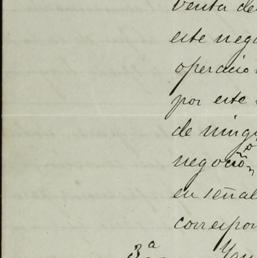 venta de
este nego
operacio
por este
de ning
negocio
en señal
correspon
3ª